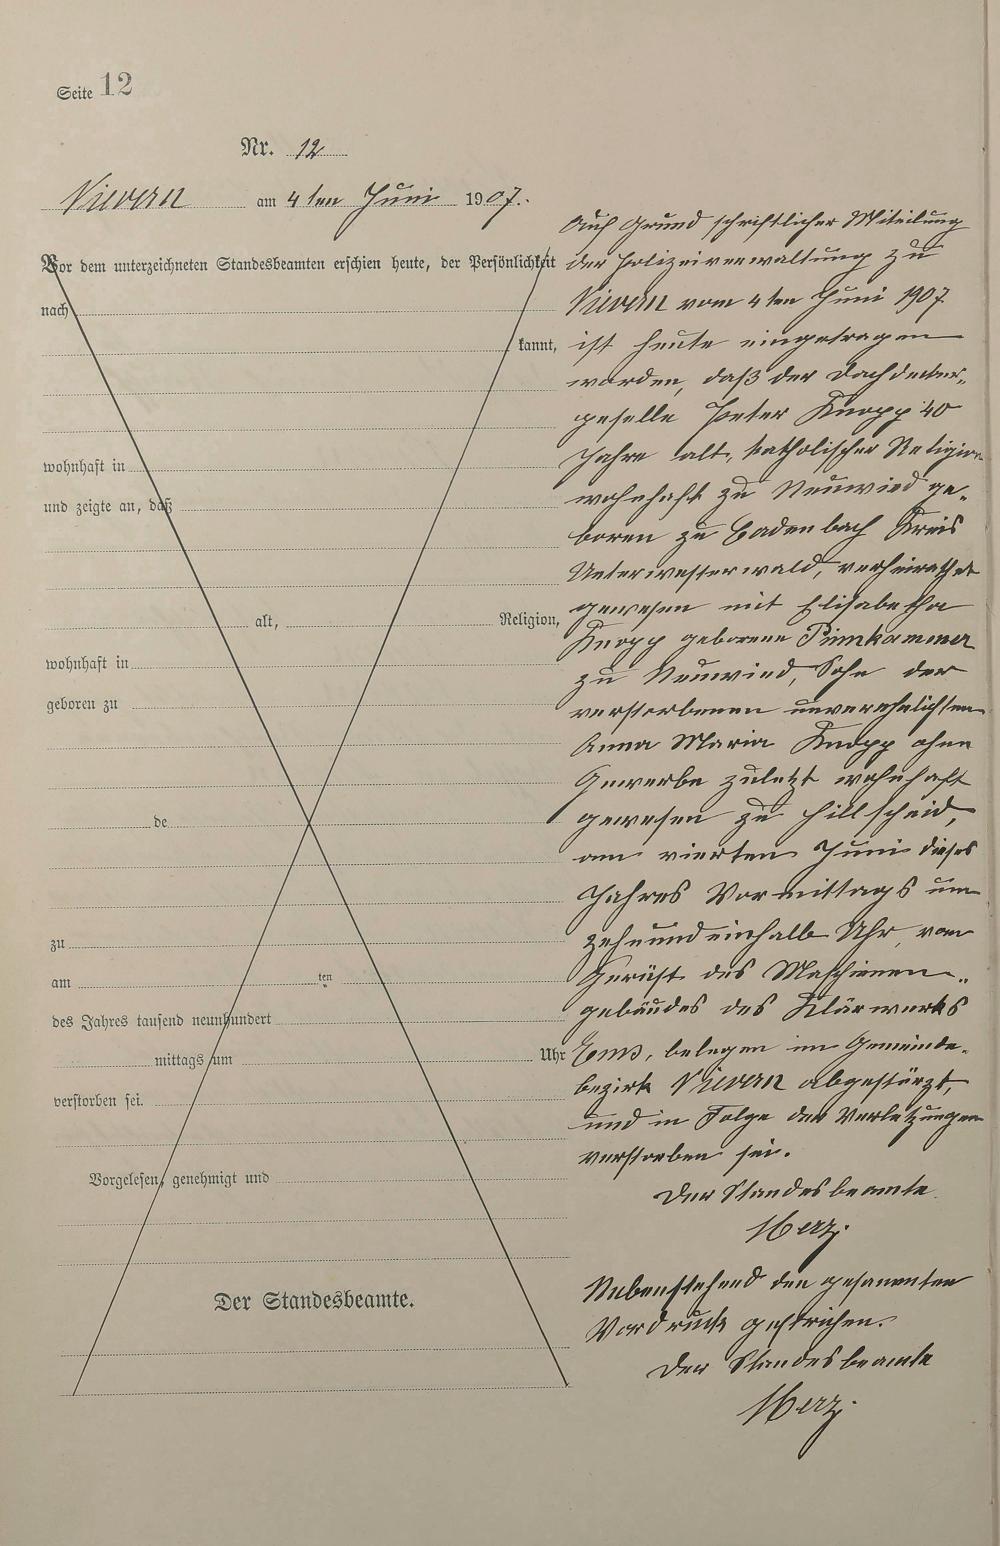 Seite 12
Nr. 12
Nievern am 4ten Juni 1907.
Vor dem unterzeichneten Standesbeamten erschien heute, der Persönlichkeit
nach
kannt,
wohnhaft in
und zeigte an, daß
alt, Religion,
wohnhaft in
geboren zu
de
zu
am ten
des Jahres tausend neunhundert
mittags um Uhr
verstorben sei.
Vorgelesen, genehmigt und
Der Standesbeamte.
Auf Grund schriftlicher Miteilung
der Polizeiverwaltung zu
Nievern vom 4ten Juni 1907
ist heute eingetragen
worden, daß der Dachdecker-
geselle Peter Knopp 40
Jahre alt, katholischer Religion
wohnhaft zu Neuwied ge-
boren zu Cadenbach Kreis
Unterwesterwald, verheirathet
gewesen mit Elisabetha
Knopp geborene
zu Neuwied, Sohn der
verstorbenen unverehelichten
Anna Maria Knopp ohne
Gewerbe zuletzt wohnhaft
gewesen zu Hillscheid,
am vierten Juni dieses
Jahres Vormittags um
zehnundeinhalb Uhr, vom
Gerüst des Maschienen-
gebäudes des Klärwerks
Ems, belegen im Gemeinde-
bezirk Nievern abgestürzt,
und in Folge der Verletzungen
verstorben sei.
Der Standesbeamte
Merz.
Nebenstehend den gesammten
Vordruck gestrichen.
Der Standesbeamte
Merz.